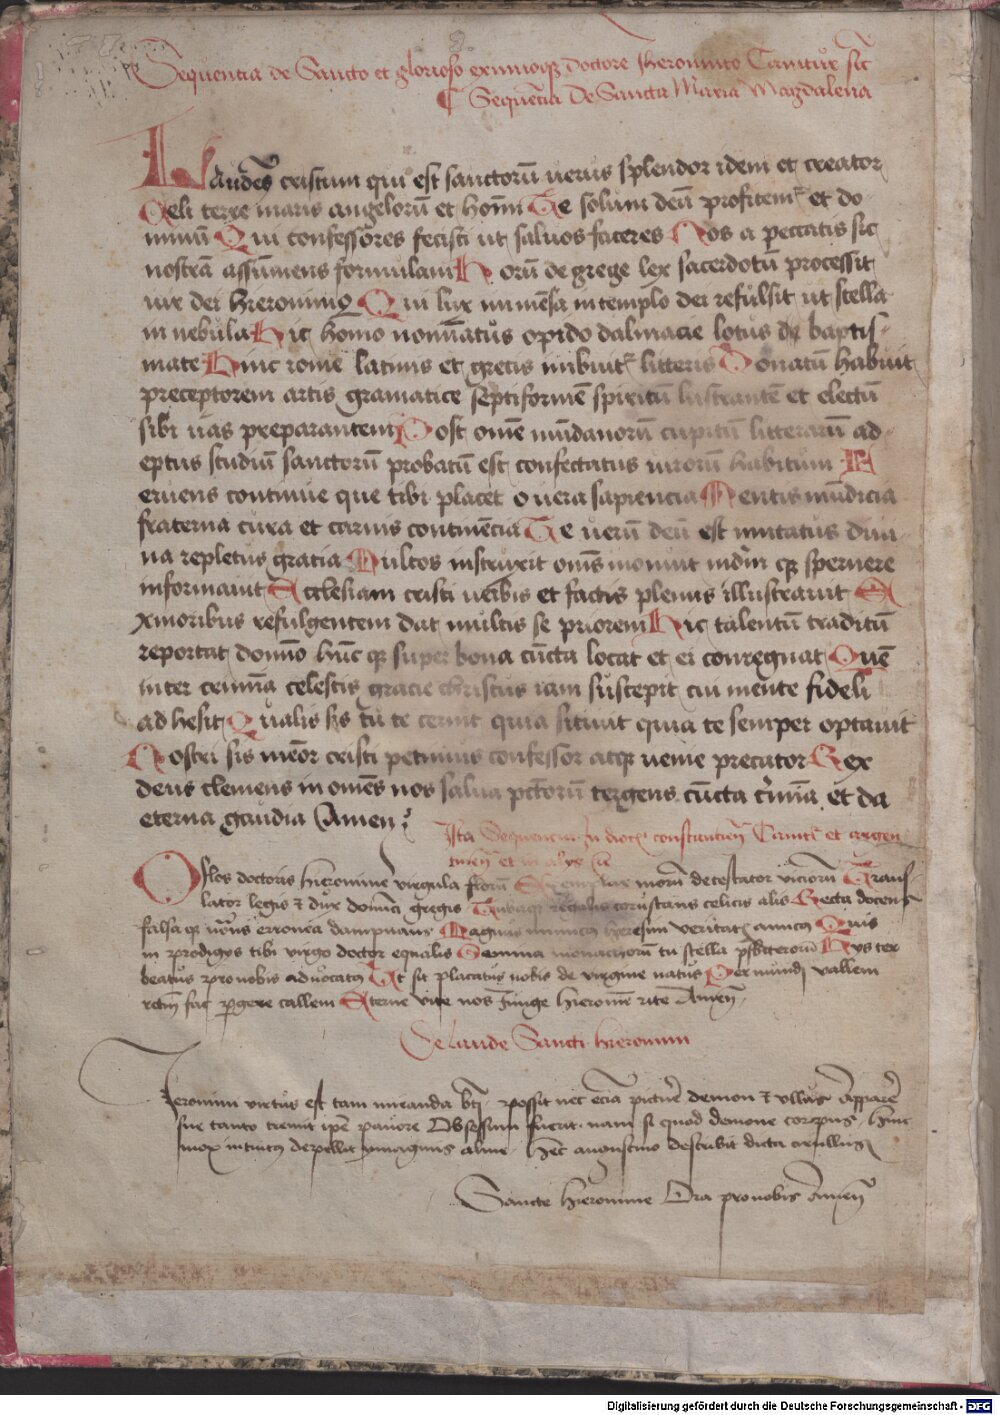 Sequentia de Sancto et glorioso eximioqꝫ doctore Iheronimo Canitur sic
Sequētia De Sancta Maria Magdalena
Laudes cristum qui est sanctorū uerus splendor idem et creator
Celi terre maris angelorū et homī Te solum deū profitemʳ et do
minū Qui confessores fecisti ut saluos faceres Nos a peccatis sic
nostrā assumens formulam Horū de grege lex sacerdotū processit
uir dei Hieronimꝰ Qui lux immēsa in templo dei refulsit ut stella
in nebula Hic homo nominatus opido dalmacie lotus de baptis-
mate Hinc rome latinis et grecis imbuitʳ litteris Donatū habuit
preceptorem artis gramatice septiformē spiritū lustrantē et electū
sibi uas preparantem Post omē mūdanorū cupitū litterarū ad-
eptus studiū sanctorū probatū est confectatus uirorū habitum
eruens continue que tibi placet o uera sapiencia Mentis mūdicia
fraterna cura et carnis continēcia Te uerū deū est imitatus diui-
na repletus gratia Multos instruxit omīs monuit mūdū qꝫ spernere
informauit Ecclesiam cristi uerbis et factis plenus illustrauit E
x moribus refulgentem dat multis se priorem Hic talentū traditū
reportat domino hūc qꝫ super bona cūcta locat et ei conregnat Quē
inter celestis gracie christus iam suscepit cui mente fideli
ad hesit Qualis sis tu te cernit quia sitiuit quia te semper optauit
Nostri sis memor cristi petimus confessor atqꝫ uenie precator Rex
deus clemens in omēs nos salua pctōrū tergens cūcta crimīa et da
eterna gaudia Amen
Ita Sequencia in dioc constancien Canitʳ et argen
tinen et in alijs
O flos doctoris hieronime virgula florū Exemplar morū detestator viciorū Trans-
lator legis et dux domīci gregis Tubaqꝫ regalis coruscans celicis alis Recta docens
falsa qꝫ erronea dampnans Magnus inimicus heresim veritatis amicus Quis
in prodigos tibi virgo doctor equalis Gemma monachorū tu stella pꝛesbiterorū Hys ter
beatus pronobis aduocatus Ut sit placatus nobis de virgine natus Per mundi vallem
rectum fac pergere callem Eterne vite nos iunge hieronime rite Amen
De laude Sancti hieronimi
Ieronimi virtus est tam miranda bti possit nec eciā picture demon et vllus Apparere
sue tanto tremit ipse pauore Obsessum fuerit nam si quod demone corpus hinc
mox intuitus depellit ymaginis alme Hec augustino describit dicta cirillus
Sancte hieronime Ora pronobis Amen
Digitalisierung gefördert durch die Deutsche Forschungsgemeinschaft - DFG